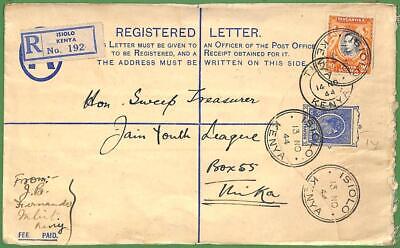 REGISTERED LETTER.
THIS LETTER MUST BE GIVEN TO AN OFFICER OF THE POST OFFICE
TO BE REGISTERED, AND A RECEIPT OBTAINED FOR IT.
THE ADDRESS MUST BE WRITTEN ON THIS SIDE.
R
ISIOLO
KENYA
No. 192
Hon. Sweep Treasurer
Jain Youth League
Box 55
Thika
From:-
Fernandes
Kenya
FEE PAID.
ISIOLO
14 NO
44
KENYA
ISIOLO
13 NO
44
KENYA
ISIOLO
13 NO
44
KENYA